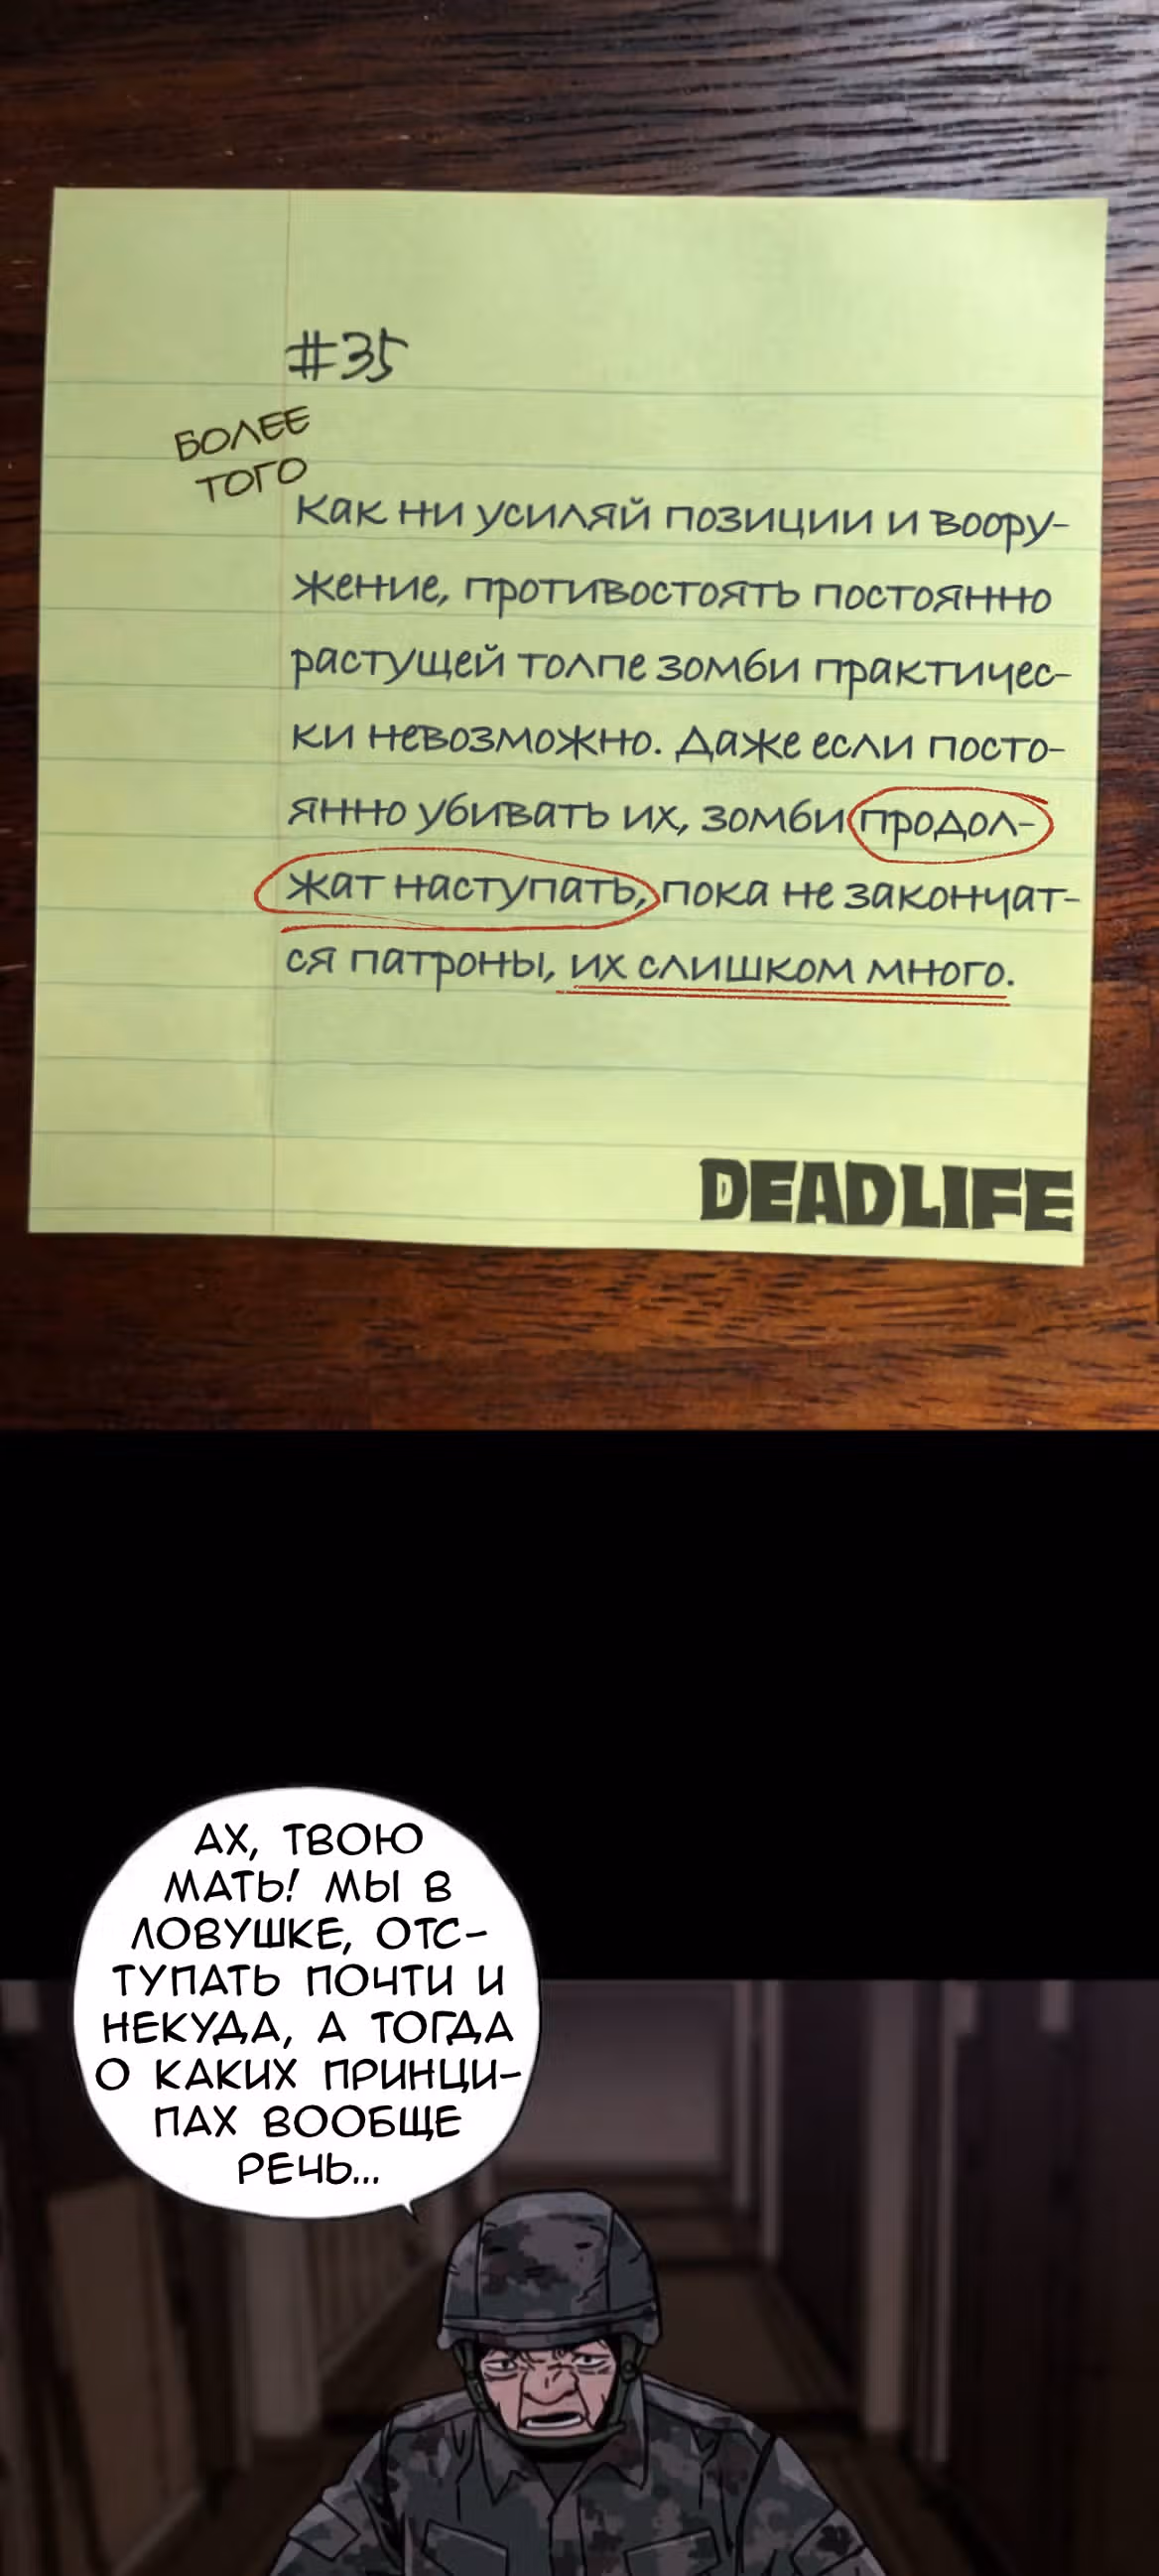 #35
БОЛЕЕ
ТОГО
Как ни усиляй позиции и воору-
жение, противостоять постоянно
растущей толпе зомби практичес-
ки невозможно. Даже если посто-
янно убивать их, зомби продол-
жат наступать, пока не закончат-
ся патроны, их слишком много.
DEADLIFE
АХ, ТВОЮ
МАТЬ! МЫ В
ЛОВУШКЕ, ОТС-
ТУПАТЬ ПОЧТИ И
НЕКУДА, А ТОГДА
О КАКИХ ПРИНЦИ-
ПАХ ВООБЩЕ
РЕЧЬ...